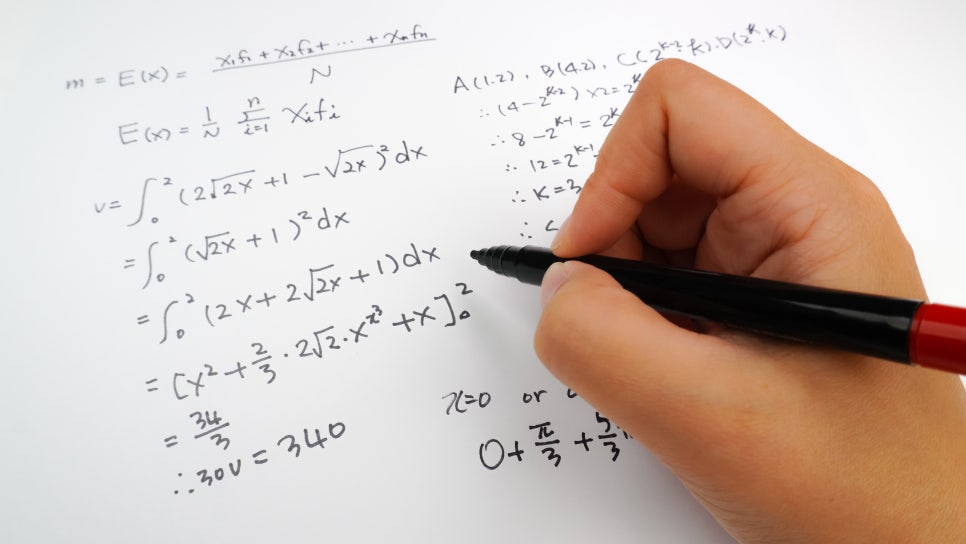 m = E(x) = (x₁f₁ + x₂f₂ + ⋯ + xₙfₙ) / N
E(x) = 1/N ∑ᵢ₌₁ⁿ xᵢfᵢ
v = ∫₀² (2√2x + 1 − √2x)² dx
= ∫₀² (√2x + 1)² dx
= ∫₀² (2x + 2√2x + 1) dx
= [x² + 2/3 · 2√2 · x
+ x]₀²
= 34/3
∴ 30V = 340
A(1.2), B(4.2), C(2ᵏ⁻².k).D(2ᵏ.k)
∴ (4 − 2ᵏ⁻²) × 2 = 2ᵏ
∴ 8 − 2ᵏ⁻¹ = 2ᵏ
∴ 12 = 2ᵏ⁻¹
∴ K = 3
∴
x = 0 or
0 + π/3 + 5/3